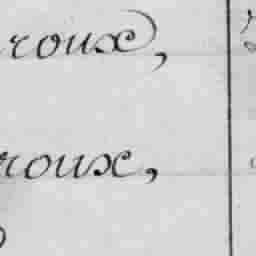 roux,
roux,